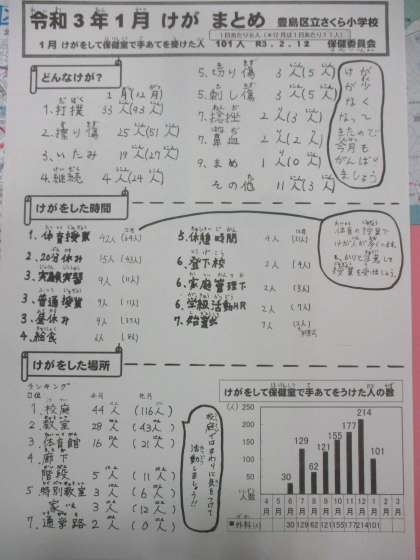 令和3年1月 けが まとめ 豊島区立さくら小学校
1月 けがをして保健室で手あてを受けた人 101人 R3.2.12 保健委員会
どんなけが?
1月(12月)
1.打撲 33人(93人)
2.擦り傷 25人(51人)
3.いたみ 19人(27人)
4.継続 4人(24人)
5.切り傷 3人(5人)
5.刺し傷 3人(5人)
7.捻挫 2人(3人)
7.鼻血 2人(2人)
9.まめ 1人(0人)
その他 11人(3人)
けが
が少
なく
なって
きたので
今月も
がんばり
ましょう
けがをした時間
1.体育授業 42人
2.20分休み 15人
3.実験実習 9人
3.普通授業 9人
3.昼休み 9人
4.給食 6人
5.休憩時間 4人
6.登下校 2人
6.家庭管理下 2人
6.学級活動HR 2人
7.始業前
体育の授業で
けが人が多いです。
けがをした場所
ランキング
1.校庭 44人(116人)
2.教室 28人(43人)
3.体育館 16人
4.廊下
階段 5人(11人)
5.特別教室 3人(6人)
家 3人(12人)
7.通学路 2人(0人)
校庭ではまわりに気をつけて
活動しましょう!!
けがをして保健室で手あてをうけた人の数
(人)
250
200
150
100
50
0
人数
30 129 62 121 155 177 214 101
4月 5月 6月 7月 8月 9月 10月 11月 12月 1月 2月 3月
外科(人) 30 129 62 121 155 177 214 101